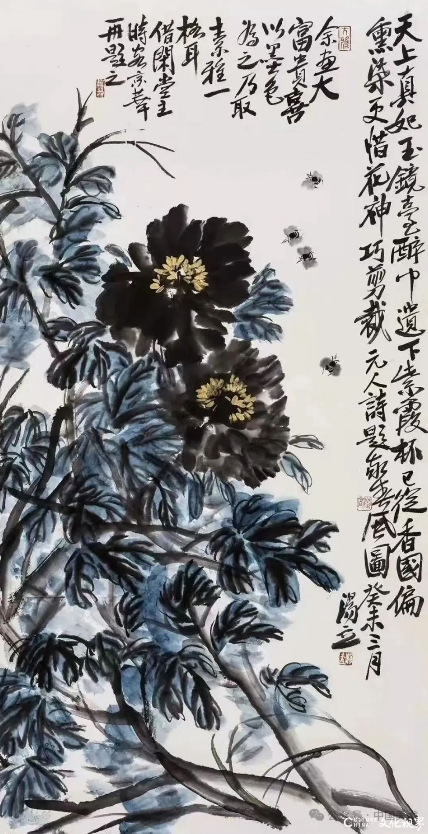 天上真妃玉鏡臺醉中遺下紫霞杯已從香國偏
熏染更惜花神巧剪裁元人詩題風圖癸未三月
湯立
余畫大
富貴喜
以墨色
為之乃取
素雅一
格耳
借閑堂主
時客京華
再題之
China 文化视界